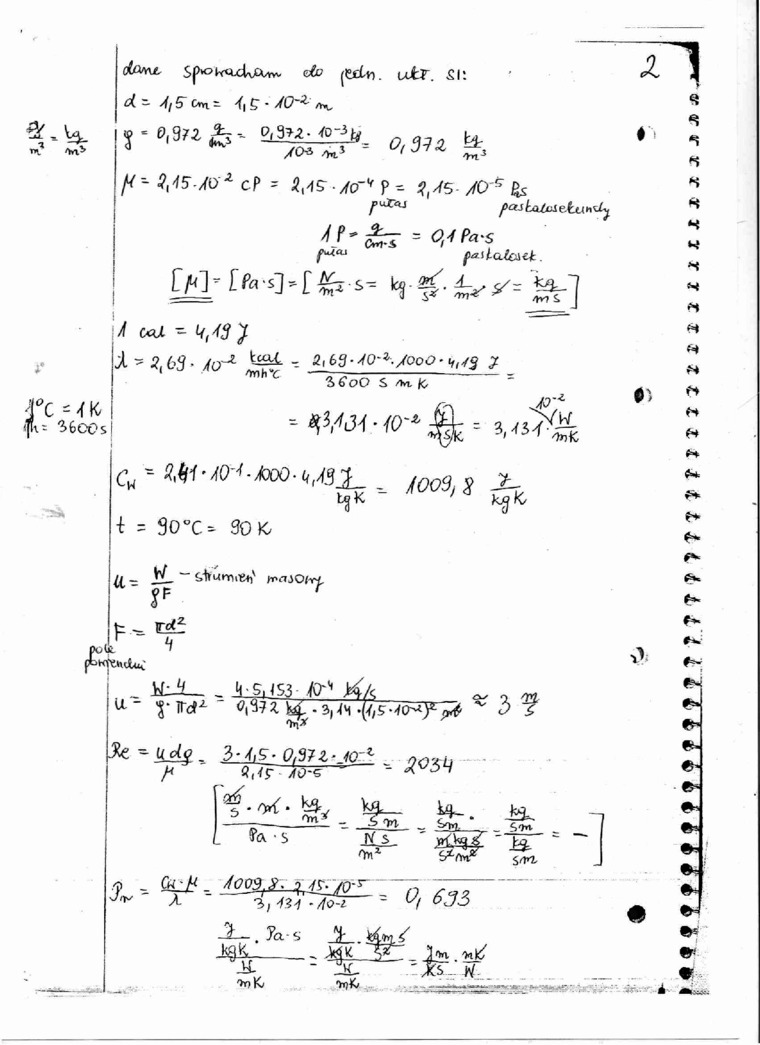 2
dane sprowadzam do jedn. ukł. SI:
d = 1,5 cm = 1,5 · 10⁻² m
g/m³ = kg/m³
ρ = 0,972 g/dm³ = 0,972 · 10⁻³ kg / 10⁻³ m³ = 0,972 kg/m³
μ = 2,15 · 10⁻² cP = 2,15 · 10⁻⁴ P = 2,15 · 10⁻⁵ Pa·s
puas paskalosekundy
1 P = g/cm·s = 0,1 Pa·s
puas paskalosek.
[μ] = [Pa·s] = [N/m² · s = kg · m/s² · 1/m² · s = kg/ms]
1 cal = 4,19 J
λ = 2,69 · 10⁻² kcal/mh°C = 2,69 · 10⁻² · 1000 · 4,19 J / 3600 s m K =
1°C = 1K
1h = 3600s
= 3,131 · 10⁻² J/msK = 3,131 · 10⁻² W/mK
C_W = 2,41 · 10⁻¹ · 1000 · 4,19 J/kgK = 1009,8 J/kgK
t = 90°C = 90 K
u = W/ρF – strumień masowy
F = πd²/4
pole
u = W·4/ρ·πd² = 4 · 5,153 · 10⁻⁴ kg/s / 0,972 kg/m³ · 3,14 · (1,5 · 10⁻²)² m² ≈ 3 m/s
Re = udρ/μ = 3 · 1,5 · 0,972 · 10⁻² / 2,15 · 10⁻⁵ = 2034
[m/s · m · kg/m³ / Pa·s = kg/sm / Ns/m² = kg/sm / m kg s/s² m² = kg/sm / kg/sm = –]
Pr = C_W · μ/λ = 1009,8 · 2,15 · 10⁻⁵ / 3,131 · 10⁻² = 0,693
J/kgK · Pa·s / W/mK = J/kgK · kgms/s² / W/mK = Jm/Ks · mK/W